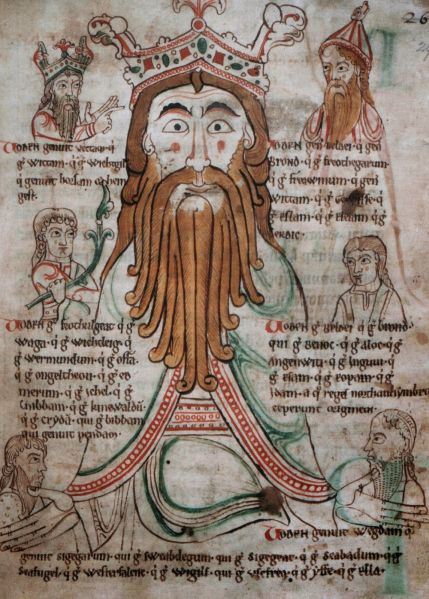 26
Woden genuit vectam · q̄
g̃ Wittam · q̄ g̃ Wichtgils
q̄ genuit hen
gest ·
Woden gen̄ belder · q̄ gen̄
Brond · q̄ g̃ freothegarum ·
q̄ g̃ freowinum · q̄ gen̄
Wittam · q̄ g̃ · q̄
g̃ eslam · q̄ g̃ elesam · q̄
Woden g̃ q̄ g̃
Waga · q̄ g̃ Wichtleig · q̄ g̃
Wermundum · q̄ g̃ offa ·
q̄ g̃ ongeltheon · q̄ g̃ eo
merum · q̄ g̃ ichel · q̄ g̃
Cnibbam · q̄ g̃ kinewaldū
q̄ g̃ crydā · qui g̃ bibbam
qui genuit pendam ·
Woden g̃ belder · q̄ g̃ brond ·
qui g̃ benoc · q̄ g̃ aloc · q̄ g̃
Angenwit · q̄ g̃ inguin · q̄
g̃ esam · q̄ g̃ eopam · q̄ g̃
idam · a q̄ reges northanhymbrorū
ceperunt originem ·
Woden genuit Wegdam q̄
genuit sigegarum · qui g̃ sweabdegum · qui g̃ sigegeat · q̄ g̃ seabadum · q̄ g̃
seafugel · q̄ g̃ westerfalcne · q̄ g̃ Wigils · qui g̃ vscfrea · q̄ g̃ yffe · q̄ g̃ ella ·